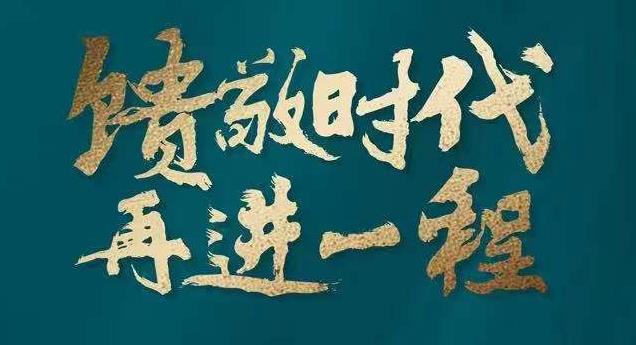 馈敬时代
再进一程